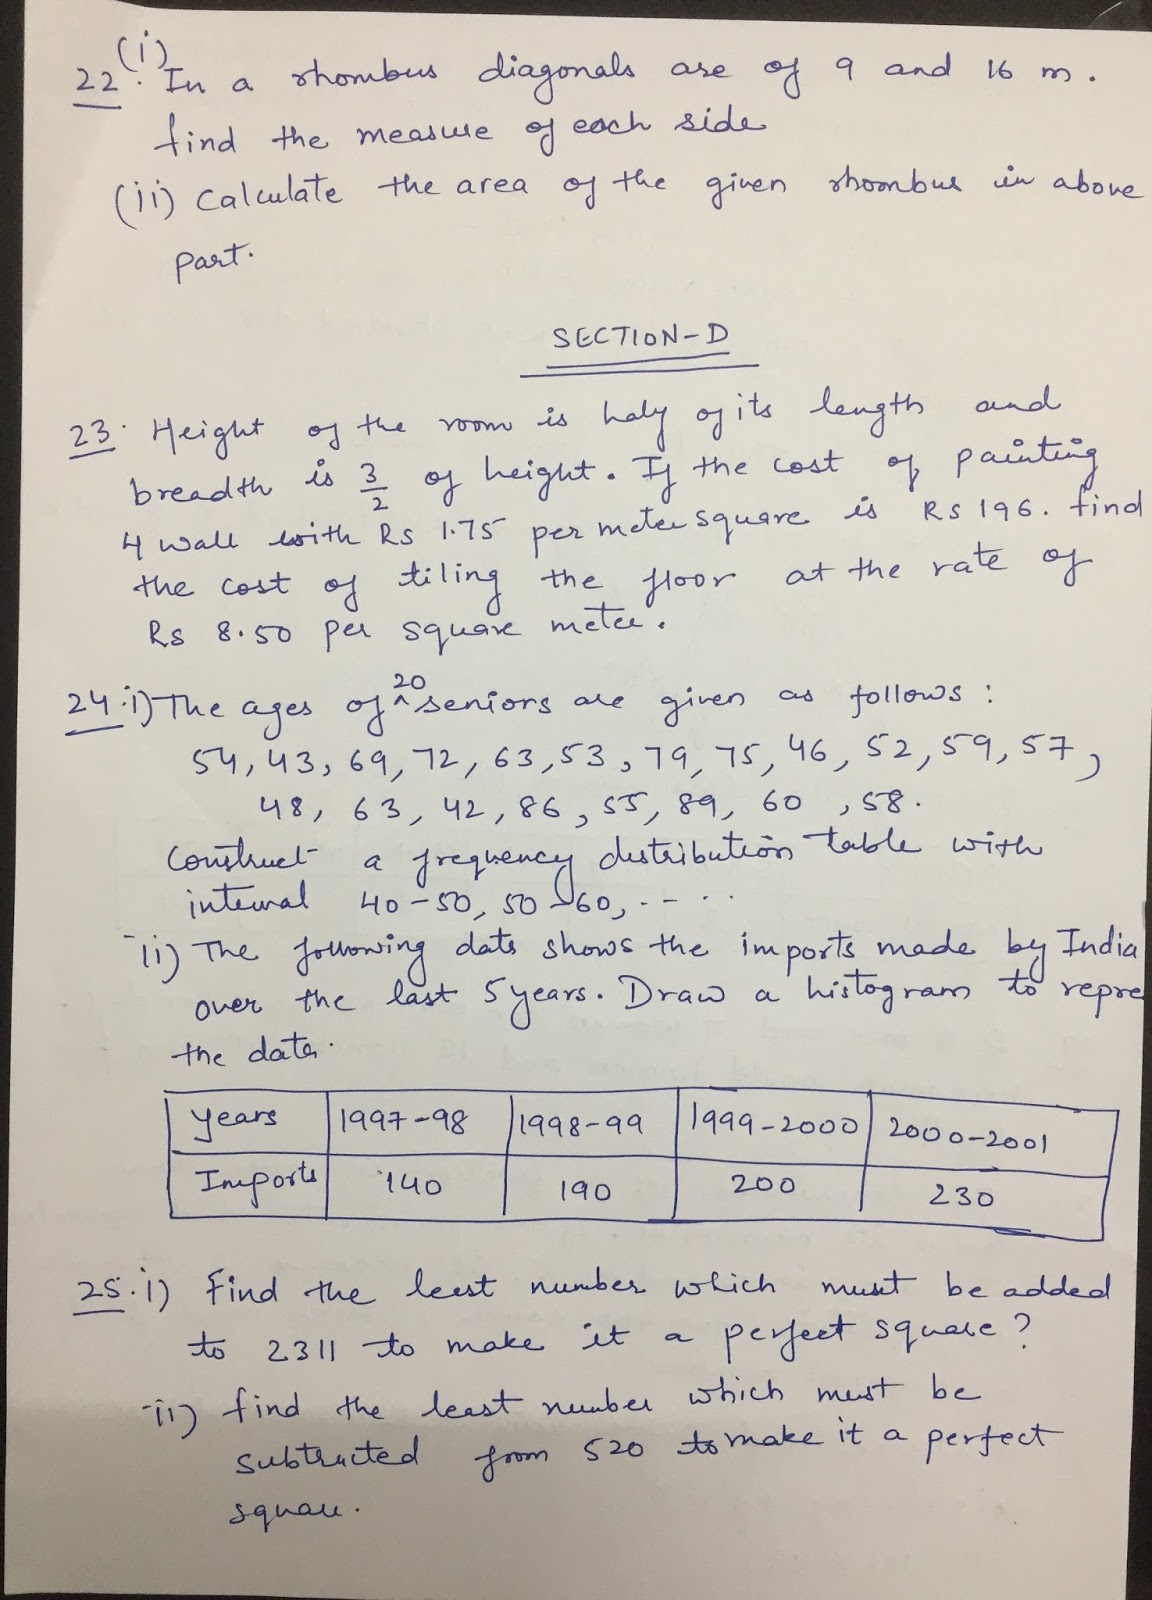 22. (i) In a rhombus diagonals are of 9 and 16 m.
find the measure of each side
(ii) Calculate the area of the given rhombus in above
part.
SECTION-D
23. Height of the room is half of its length and
breadth is 3/2 of height. If the cost of painting
4 wall with Rs 1.75 per meter square is Rs 196. find
the cost of tiling the floor at the rate of
Rs 8.50 per square meter.
24. i) The ages of 20 seniors are given as follows :
54, 43, 69, 72, 63, 53, 79, 75, 46, 52, 59, 57,
48, 63, 42, 86, 55, 89, 60, 58.
Construct a frequency distribution table with
interval 40-50, 50-60, - - - -
ii) The following data shows the imports made by India
over the last 5 years. Draw a histogram to repre
the data.
Years 1997-98 1998-99 1999-2000 2000-2001
Imports 140 190 200 230
25. i) Find the least number which must be added
to 2311 to make it a perfect square ?
ii) find the least number which must be
subtracted from 520 to make it a perfect
square.